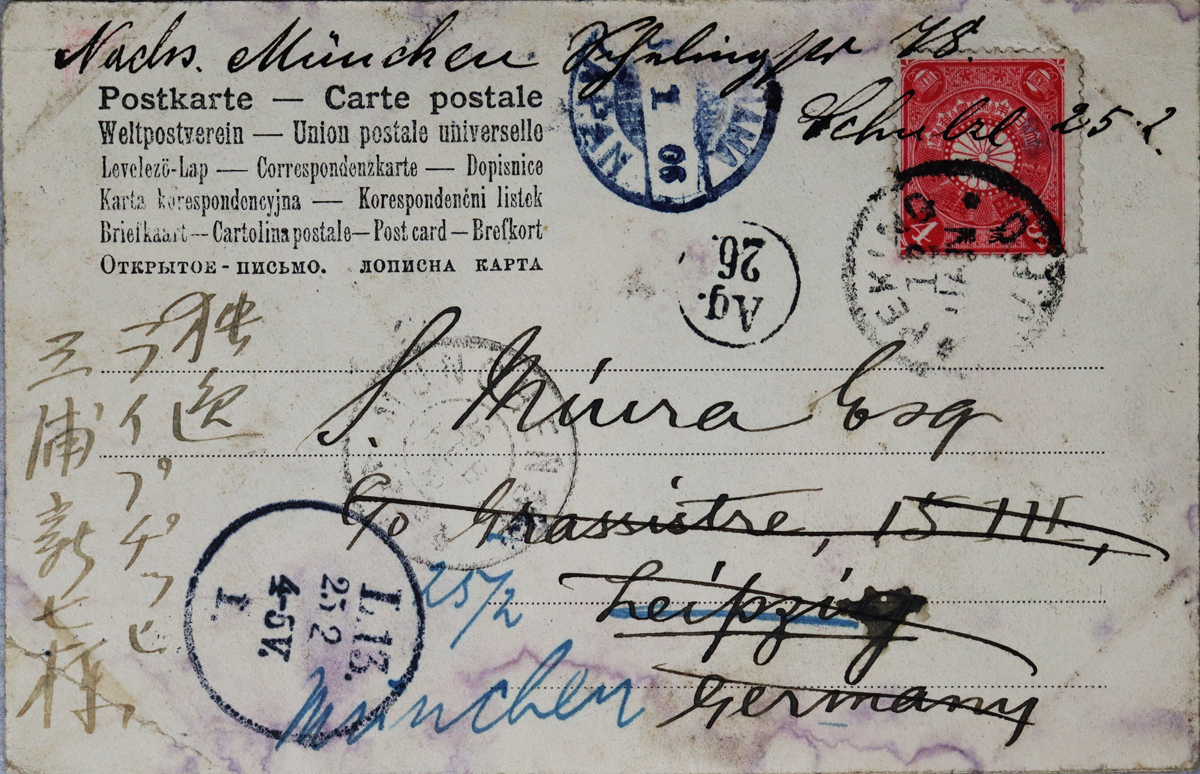 Nachs. München Schellingstr 78.
Schulze 25.2.
Postkarte — Carte postale
Weltpostverein — Union postale universelle
Levelező-Lap — Correspondenzkarte — Dopisnice
Karta korespondencyjna — Korespondenčni listek
Briefkaart — Cartolina postale — Post card — Brefkort
Открытое-письмо. лописна карта
JAPAN
1
06
Ag.
26.
4
S. Miura Esq
c/o Grassistre, 15 III,
Leipzig
Germany
25/2
München
L.13.
25 2
4-5V.
1.
MÜNCHEN
独逸
ライプチッヒ
三浦新七様